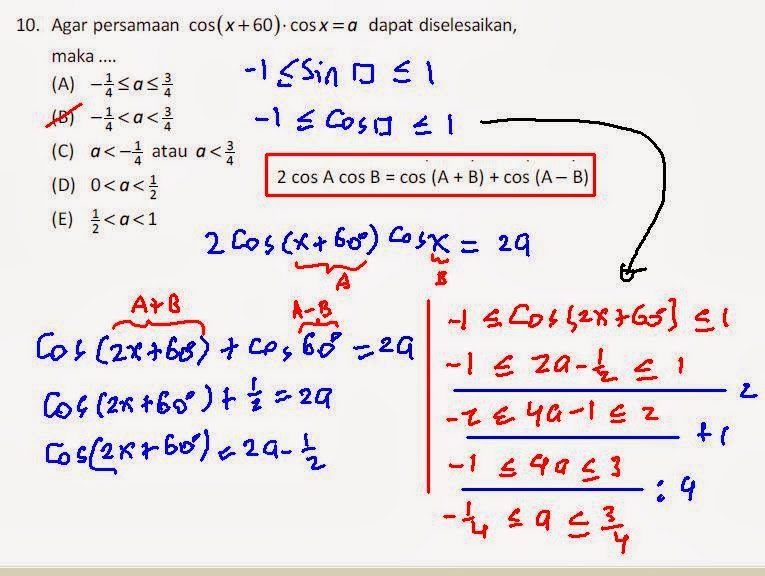 10. Agar persamaan cos(x+60)·cosx=a dapat diselesaikan,
maka ....
(A) -1/4≤a≤3/4
(B) -1/4<a<3/4
(C) a<-1/4 atau a<3/4
(D) 0<a<1/2
(E) 1/2<a<1
-1 ≤ Sin □ ≤ 1
-1 ≤ Cos □ ≤ 1
2 cos A cos B = cos (A + B) + cos (A – B)
2 Cos(x+60°) Cos x = 2a
A B
A+B A-B
Cos(2x+60°) + cos 60° = 2a
Cos(2x+60°) + 1/2 = 2a
Cos(2x+60°) = 2a - 1/2
-1 ≤ Cos{2x+60°} ≤ 1
-1 ≤ 2a - 1/2 ≤ 1
2
-2 ≤ 4a-1 ≤ 2
+1
-1 ≤ 4a ≤ 3
: 4
-1/4 ≤ a ≤ 3/4